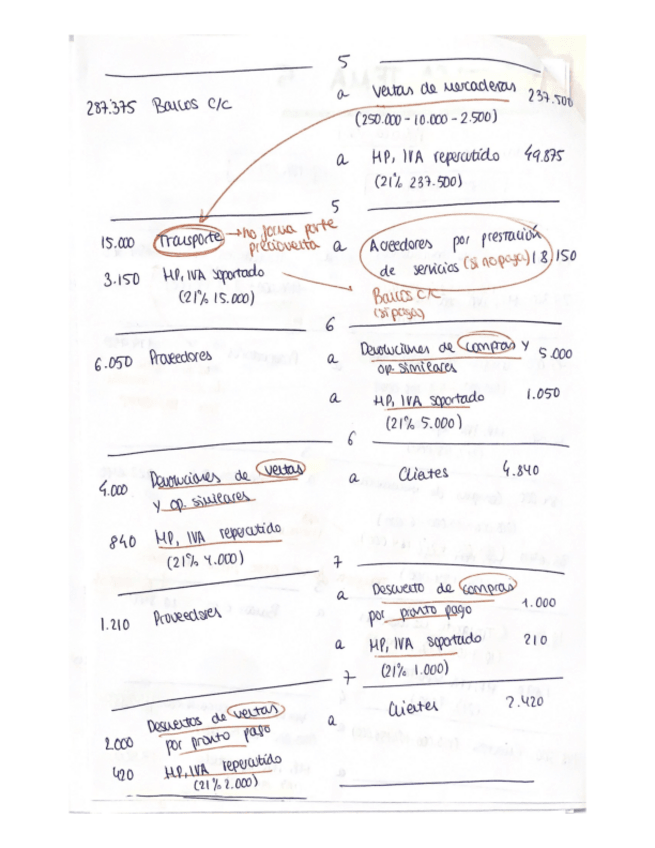 5
287.375 Bancos C/C a Ventas de mercaderías 237.500
(250.000 - 10.000 - 2.500)
a HP, IVA repercutido 49.875
(21% 237.500)
5
15.000 Transporte → no forma parte
precio venta
a Acreedores por prestación
de servicios (si no paga) 18.150
3.150 HP, IVA soportado
(21% 15.000)
Bancos C/C
(si paga)
6
6.050 Proveedores a Devoluciones de compras y 5.000
op. similares
a HP, IVA soportado 1.050
(21% 5.000)
6
4.000 Devoluciones de ventas a Clientes 4.840
y op. similares
840 HP, IVA repercutido
(21% 4.000)
7
1.210 Proveedores a Descuento de compras 1.000
por pronto pago
a HP, IVA soportado 210
(21% 1.000)
7
2.000 Descuentos de ventas a Clientes 2.420
por pronto pago
420 HP, IVA repercutido
(21% 2.000)